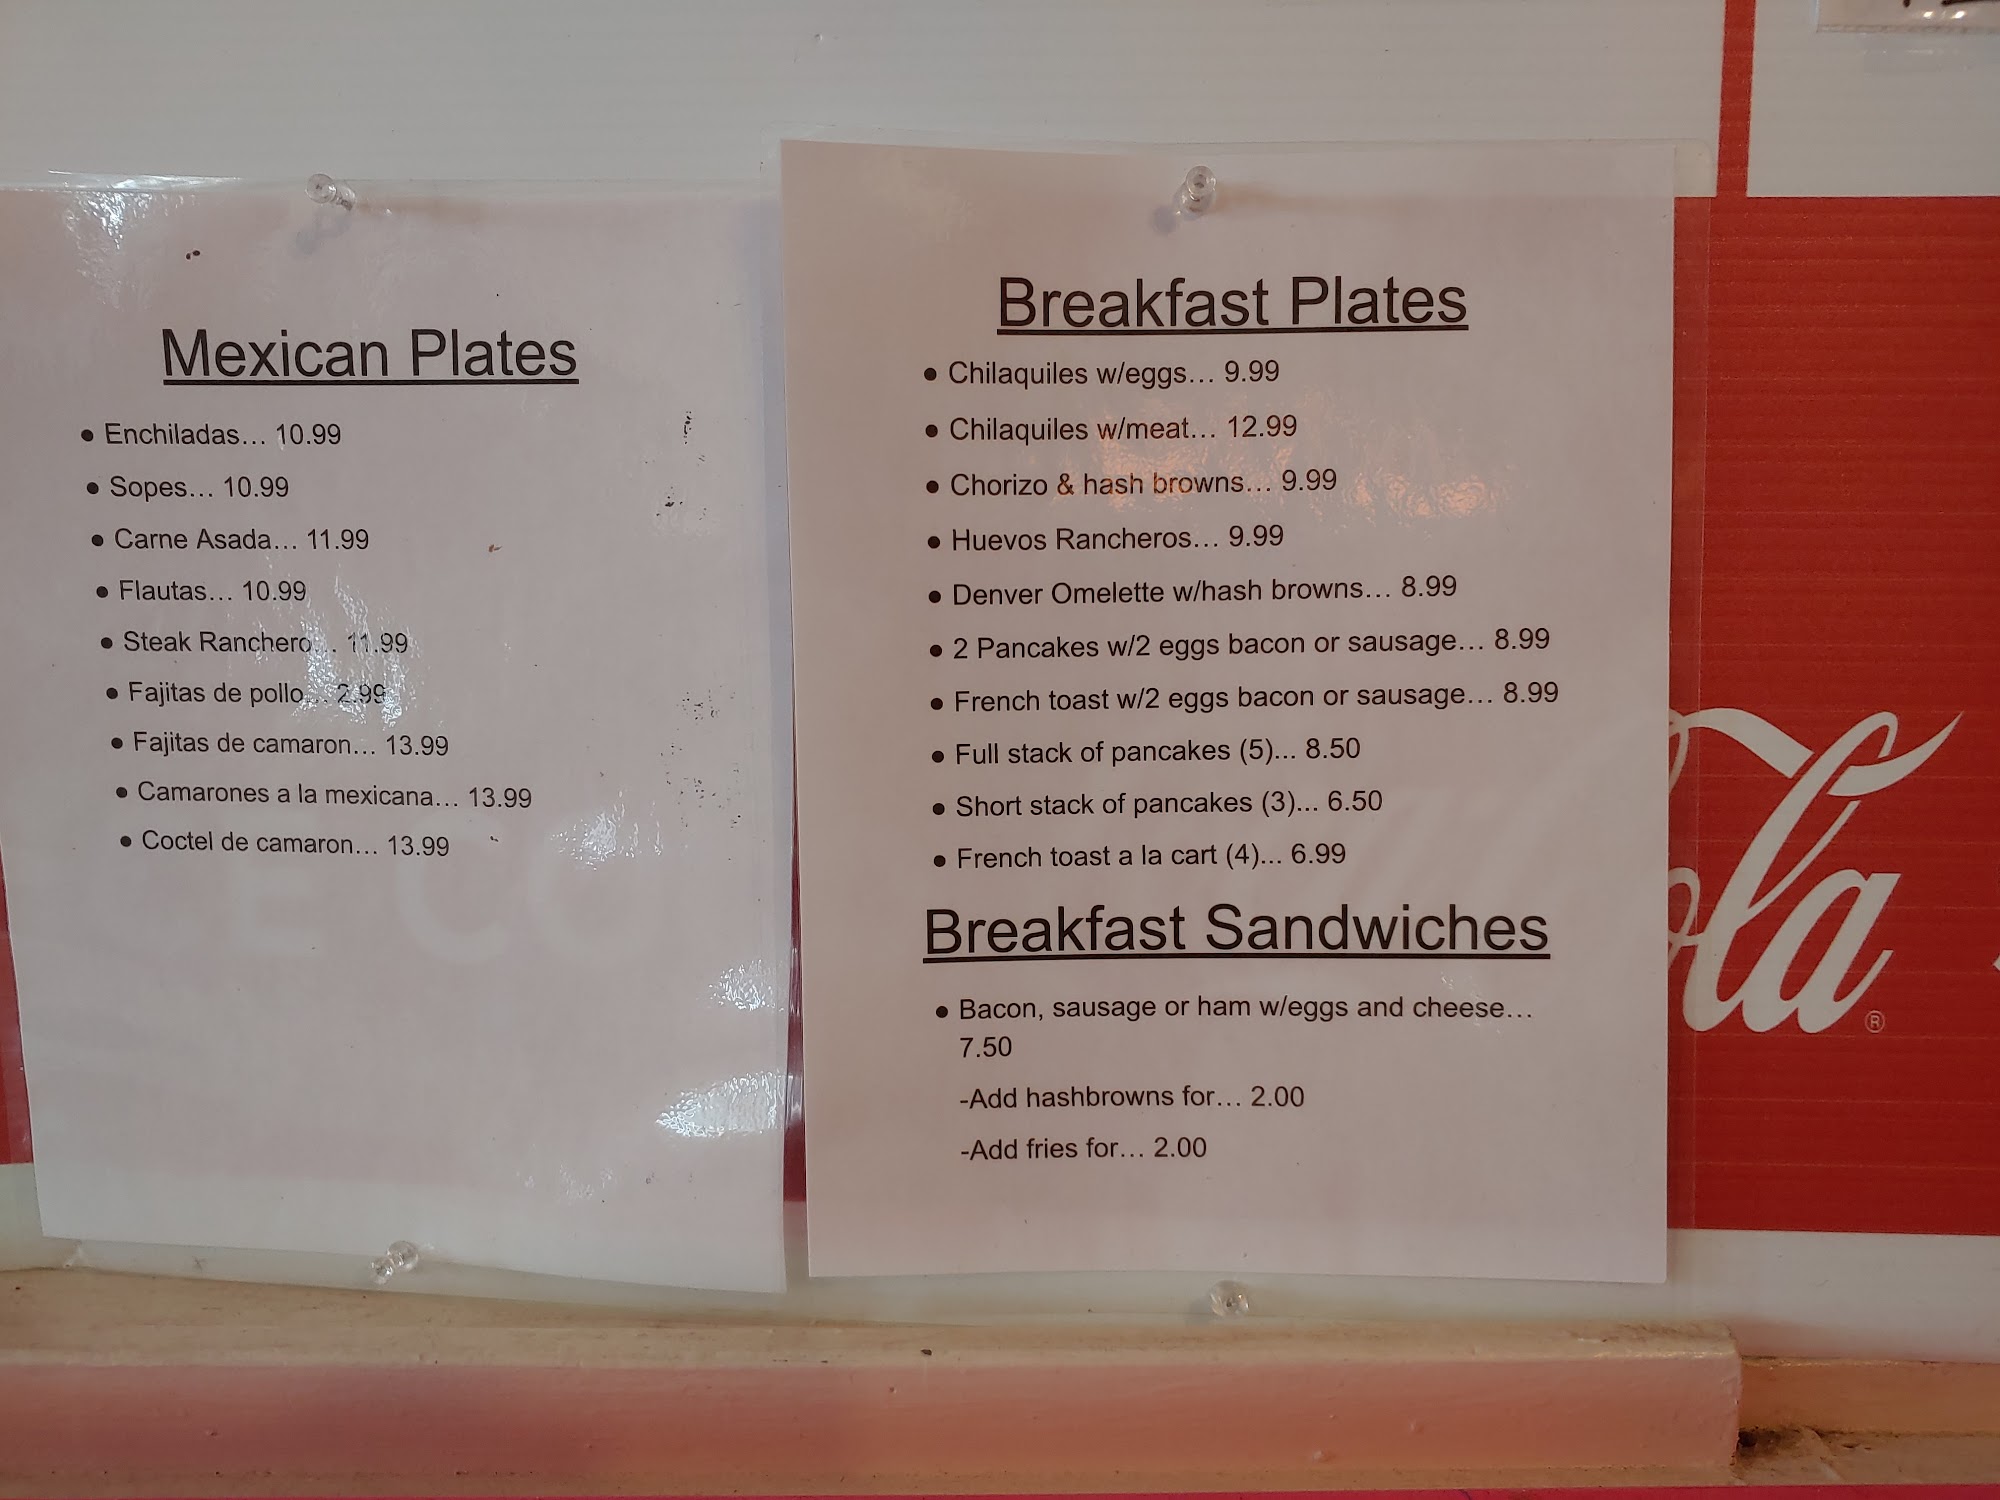 Mexican Plates
● Enchiladas... 10.99
● Sopes... 10.99
● Carne Asada... 11.99
● Flautas... 10.99
● Steak Ranchero... 11.99
● Fajitas de pollo... 2.99
● Fajitas de camaron... 13.99
● Camarones a la mexicana... 13.99
● Coctel de camaron... 13.99
Breakfast Plates
● Chilaquiles w/eggs... 9.99
● Chilaquiles w/meat... 12.99
● Chorizo & hash browns... 9.99
● Huevos Rancheros... 9.99
● Denver Omelette w/hash browns... 8.99
● 2 Pancakes w/2 eggs bacon or sausage... 8.99
● French toast w/2 eggs bacon or sausage... 8.99
● Full stack of pancakes (5)... 8.50
● Short stack of pancakes (3)... 6.50
● French toast a la cart (4)... 6.99
Breakfast Sandwiches
● Bacon, sausage or ham w/eggs and cheese...
7.50
-Add hashbrowns for... 2.00
-Add fries for... 2.00
ola ®